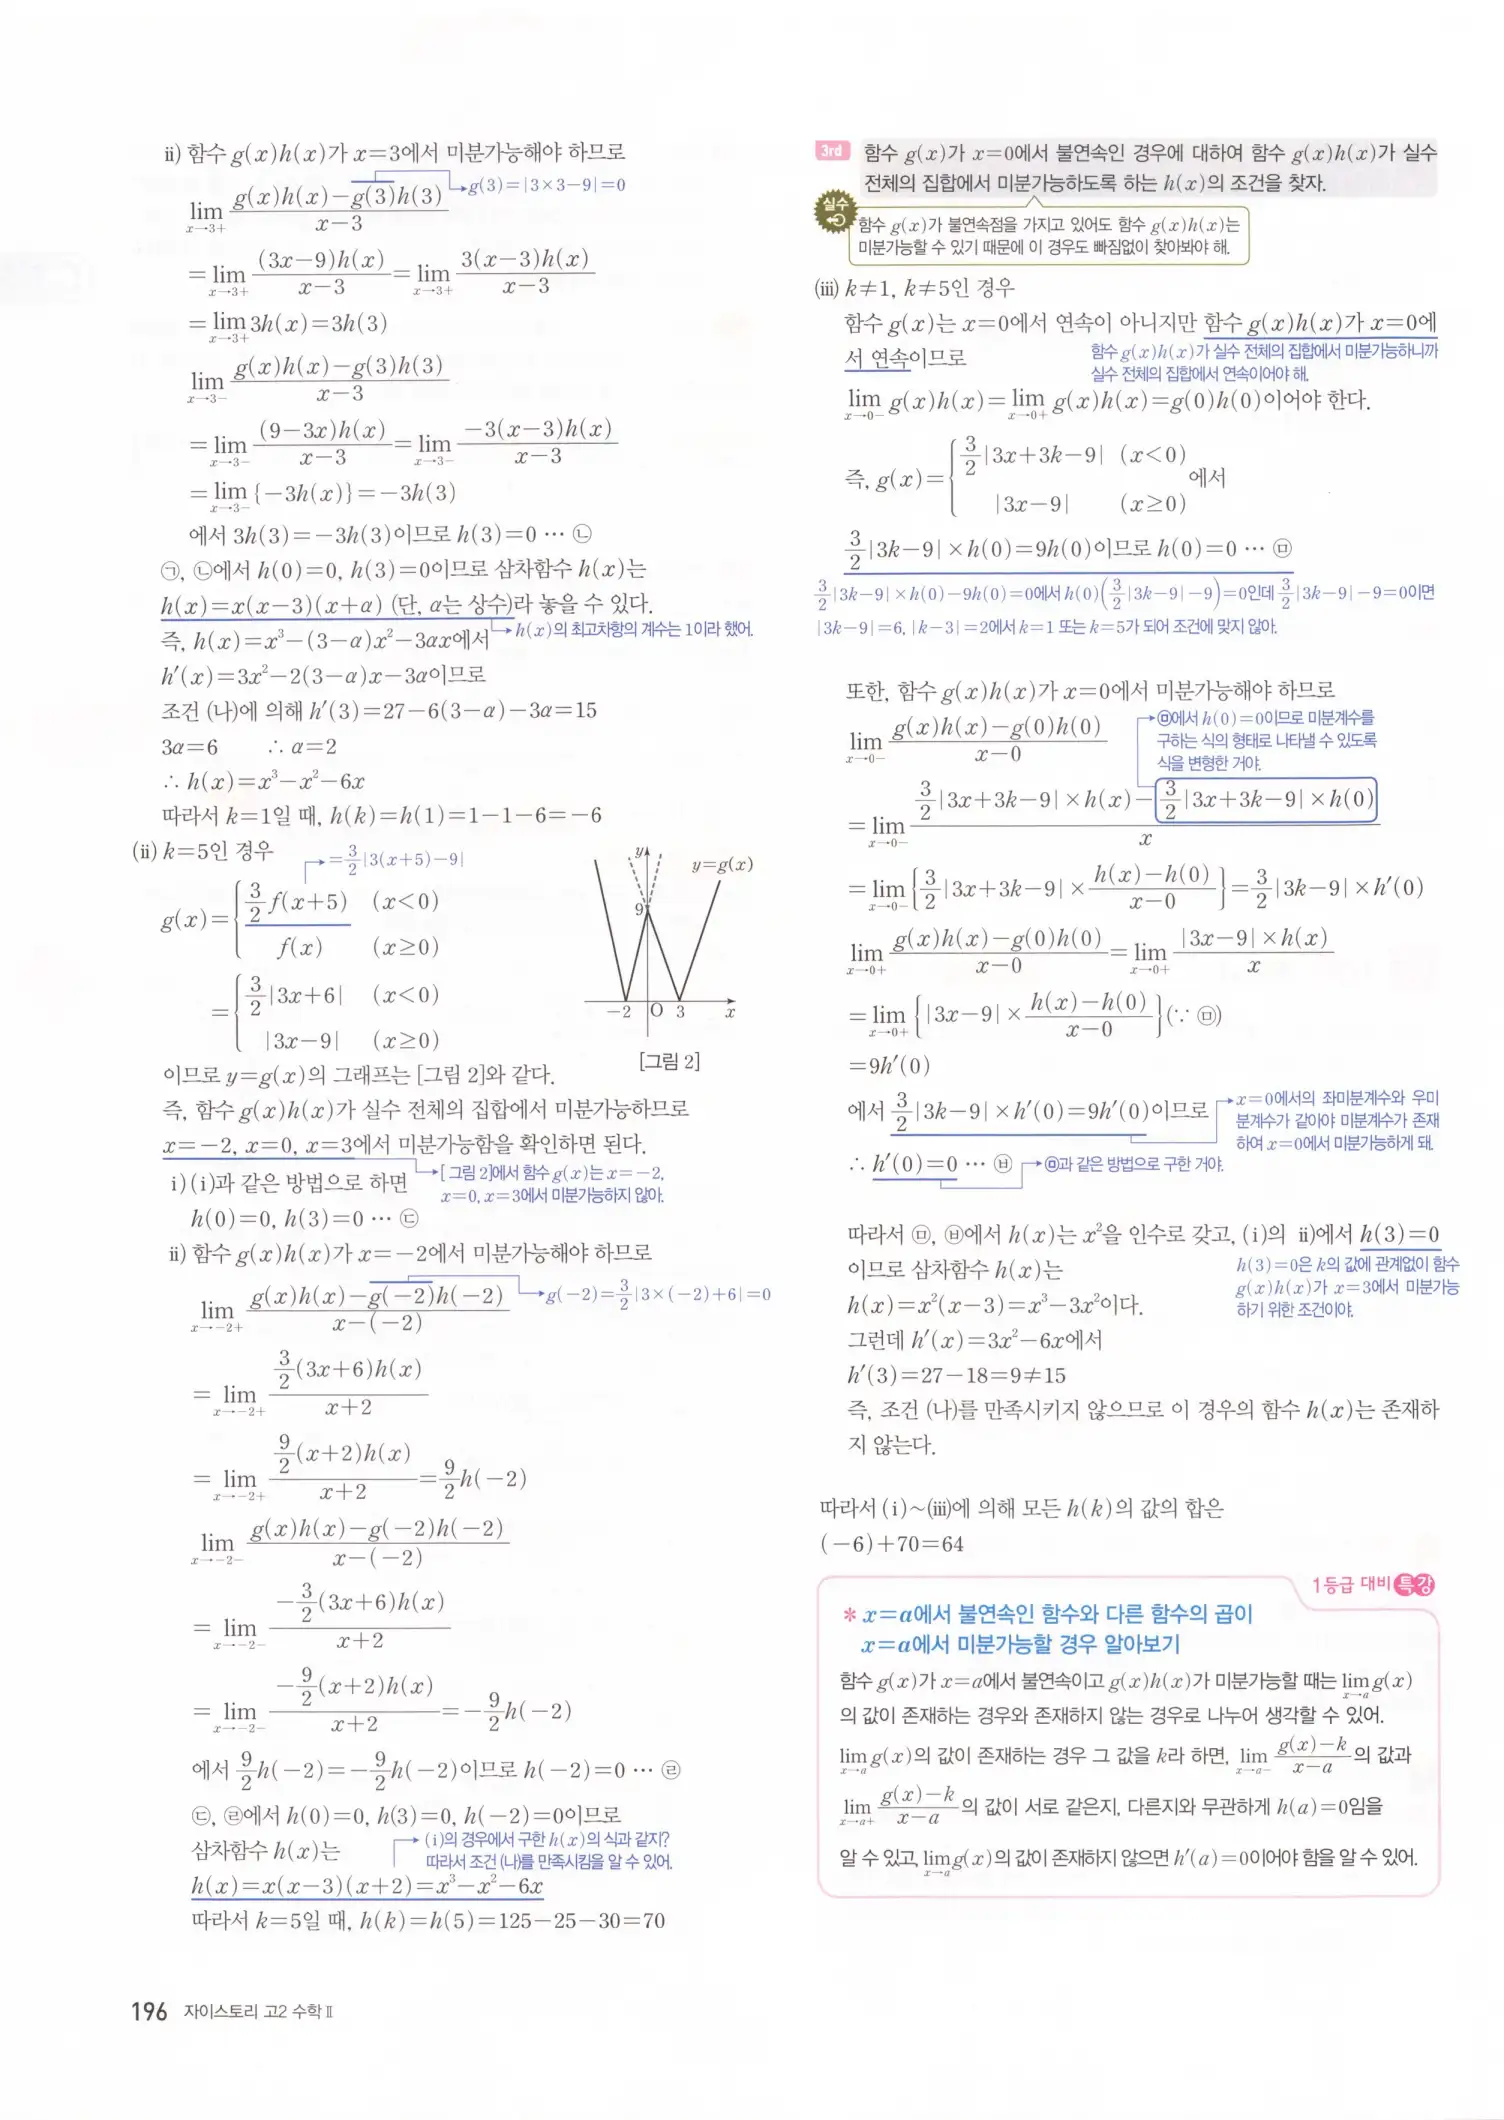 ii) 함수 g(x)h(x)가 x=3에서 미분가능해야 하므로
lim_{x→3+} {g(x)h(x)-g(3)h(3)}/(x-3)
g(3)=|3×3-9|=0
=lim_{x→3+} (3x-9)h(x)/(x-3)=lim_{x→3+} 3(x-3)h(x)/(x-3)
=lim_{x→3+} 3h(x)=3h(3)
lim_{x→3-} {g(x)h(x)-g(3)h(3)}/(x-3)
=lim_{x→3-} (9-3x)h(x)/(x-3)=lim_{x→3-} -3(x-3)h(x)/(x-3)
=lim_{x→3-} {-3h(x)}=-3h(3)
에서 3h(3)=-3h(3)이므로 h(3)=0 ⋯ ㉡
㉠, ㉡에서 h(0)=0, h(3)=0이므로 삼차함수 h(x)는
h(x)=x(x-3)(x+α) (단, α는 상수)라 놓을 수 있다.
h(x)의 최고차항의 계수는 1이라 했어.
즉, h(x)=x³-(3-α)x²-3αx에서
h'(x)=3x²-2(3-α)x-3α이므로
조건 (나)에 의해 h'(3)=27-6(3-α)-3α=15
3α=6 ∴ α=2
∴ h(x)=x³-x²-6x
따라서 k=1일 때, h(k)=h(1)=1-1-6=-6
(ii) k=5인 경우
=3/2|3(x+5)-9|
g(x)={ 3/2 f(x+5) (x<0)
f(x) (x≥0)
={ 3/2|3x+6| (x<0)
|3x-9| (x≥0)
y
y=g(x)
9
-2 O 3 x
[그림 2]
이므로 y=g(x)의 그래프는 [그림 2]와 같다.
즉, 함수 g(x)h(x)가 실수 전체의 집합에서 미분가능하므로
x=-2, x=0, x=3에서 미분가능함을 확인하면 된다.
[그림 2]에서 함수 g(x)는 x=-2,
x=0, x=3에서 미분가능하지 않아.
i) (i)과 같은 방법으로 하면
h(0)=0, h(3)=0 ⋯ ㉢
ii) 함수 g(x)h(x)가 x=-2에서 미분가능해야 하므로
lim_{x→-2+} {g(x)h(x)-g(-2)h(-2)}/{x-(-2)}
g(-2)=3/2|3×(-2)+6|=0
=lim_{x→-2+} 3/2(3x+6)h(x)/(x+2)
=lim_{x→-2+} 9/2(x+2)h(x)/(x+2)=9/2 h(-2)
lim_{x→-2-} {g(x)h(x)-g(-2)h(-2)}/{x-(-2)}
=lim_{x→-2-} -3/2(3x+6)h(x)/(x+2)
=lim_{x→-2-} -9/2(x+2)h(x)/(x+2)=-9/2 h(-2)
에서 9/2 h(-2)=-9/2 h(-2)이므로 h(-2)=0 ⋯ ㉣
㉢, ㉣에서 h(0)=0, h(3)=0, h(-2)=0이므로
삼차함수 h(x)는
(i)의 경우에서 구한 h(x)의 식과 같지?
따라서 조건 (나)를 만족시킴을 알 수 있어.
h(x)=x(x-3)(x+2)=x³-x²-6x
따라서 k=5일 때, h(k)=h(5)=125-25-30=70
3rd 함수 g(x)가 x=0에서 불연속인 경우에 대하여 함수 g(x)h(x)가 실수
전체의 집합에서 미분가능하도록 하는 h(x)의 조건을 찾자.
실수
함수 g(x)가 불연속점을 가지고 있어도 함수 g(x)h(x)는
미분가능할 수 있기 때문에 이 경우도 빠짐없이 찾아봐야 해.
(iii) k≠1, k≠5인 경우
함수 g(x)는 x=0에서 연속이 아니지만 함수 g(x)h(x)가 x=0에
서 연속이므로
함수 g(x)h(x)가 실수 전체의 집합에서 미분가능하니까
실수 전체의 집합에서 연속이어야 해.
lim_{x→0-} g(x)h(x)=lim_{x→0+} g(x)h(x)=g(0)h(0)이어야 한다.
즉, g(x)={ 3/2|3x+3k-9| (x<0)
|3x-9| (x≥0) 에서
3/2|3k-9|×h(0)=9h(0)이므로 h(0)=0 ⋯ ㉤
3/2|3k-9|×h(0)-9h(0)=0에서 h(0)(3/2|3k-9|-9)=0인데 3/2|3k-9|-9=0이면
|3k-9|=6, |k-3|=2에서 k=1 또는 k=5가 되어 조건에 맞지 않아.
또한, 함수 g(x)h(x)가 x=0에서 미분가능해야 하므로
lim_{x→0-} {g(x)h(x)-g(0)h(0)}/(x-0)
㉤에서 h(0)=0이므로 미분계수를
구하는 식의 형태로 나타낼 수 있도록
식을 변형한 거야.
=lim_{x→0-} {3/2|3x+3k-9|×h(x)-3/2|3x+3k-9|×h(0)}/x
=lim_{x→0-} {3/2|3x+3k-9|×(h(x)-h(0))/(x-0)}=3/2|3k-9|×h'(0)
lim_{x→0+} {g(x)h(x)-g(0)h(0)}/(x-0)=lim_{x→0+} |3x-9|×h(x)/x
=lim_{x→0+} {|3x-9|×(h(x)-h(0))/(x-0)}(∵ ㉤)
=9h'(0)
에서 3/2|3k-9|×h'(0)=9h'(0)이므로
x=0에서의 좌미분계수와 우미
분계수가 같아야 미분계수가 존재
하여 x=0에서 미분가능하게 돼.
∴ h'(0)=0 ⋯ ㉥
㉤과 같은 방법으로 구한 거야.
따라서 ㉤, ㉥에서 h(x)는 x²을 인수로 갖고, (i)의 ii)에서 h(3)=0
이므로 삼차함수 h(x)는
h(3)=0은 k의 값에 관계없이 함수
g(x)h(x)가 x=3에서 미분가능
하기 위한 조건이야.
h(x)=x²(x-3)=x³-3x²이다.
그런데 h'(x)=3x²-6x에서
h'(3)=27-18=9≠15
즉, 조건 (나)를 만족시키지 않으므로 이 경우의 함수 h(x)는 존재하
지 않는다.
따라서 (i)~(iii)에 의해 모든 h(k)의 값의 합은
(-6)+70=64
1등급 대비 특강
* x=a에서 불연속인 함수와 다른 함수의 곱이
x=a에서 미분가능할 경우 알아보기
함수 g(x)가 x=a에서 불연속이고 g(x)h(x)가 미분가능할 때는 lim_{x→a} g(x)
의 값이 존재하는 경우와 존재하지 않는 경우로 나누어 생각할 수 있어.
lim_{x→a} g(x)의 값이 존재하는 경우 그 값을 k라 하면, lim_{x→a-} (g(x)-k)/(x-a)의 값과
lim_{x→a+} (g(x)-k)/(x-a)의 값이 서로 같은지, 다른지와 무관하게 h(a)=0임을
알 수 있고, lim_{x→a} g(x)의 값이 존재하지 않으면 h'(a)=0이어야 함을 알 수 있어.
196 자이스토리 고2 수학 II